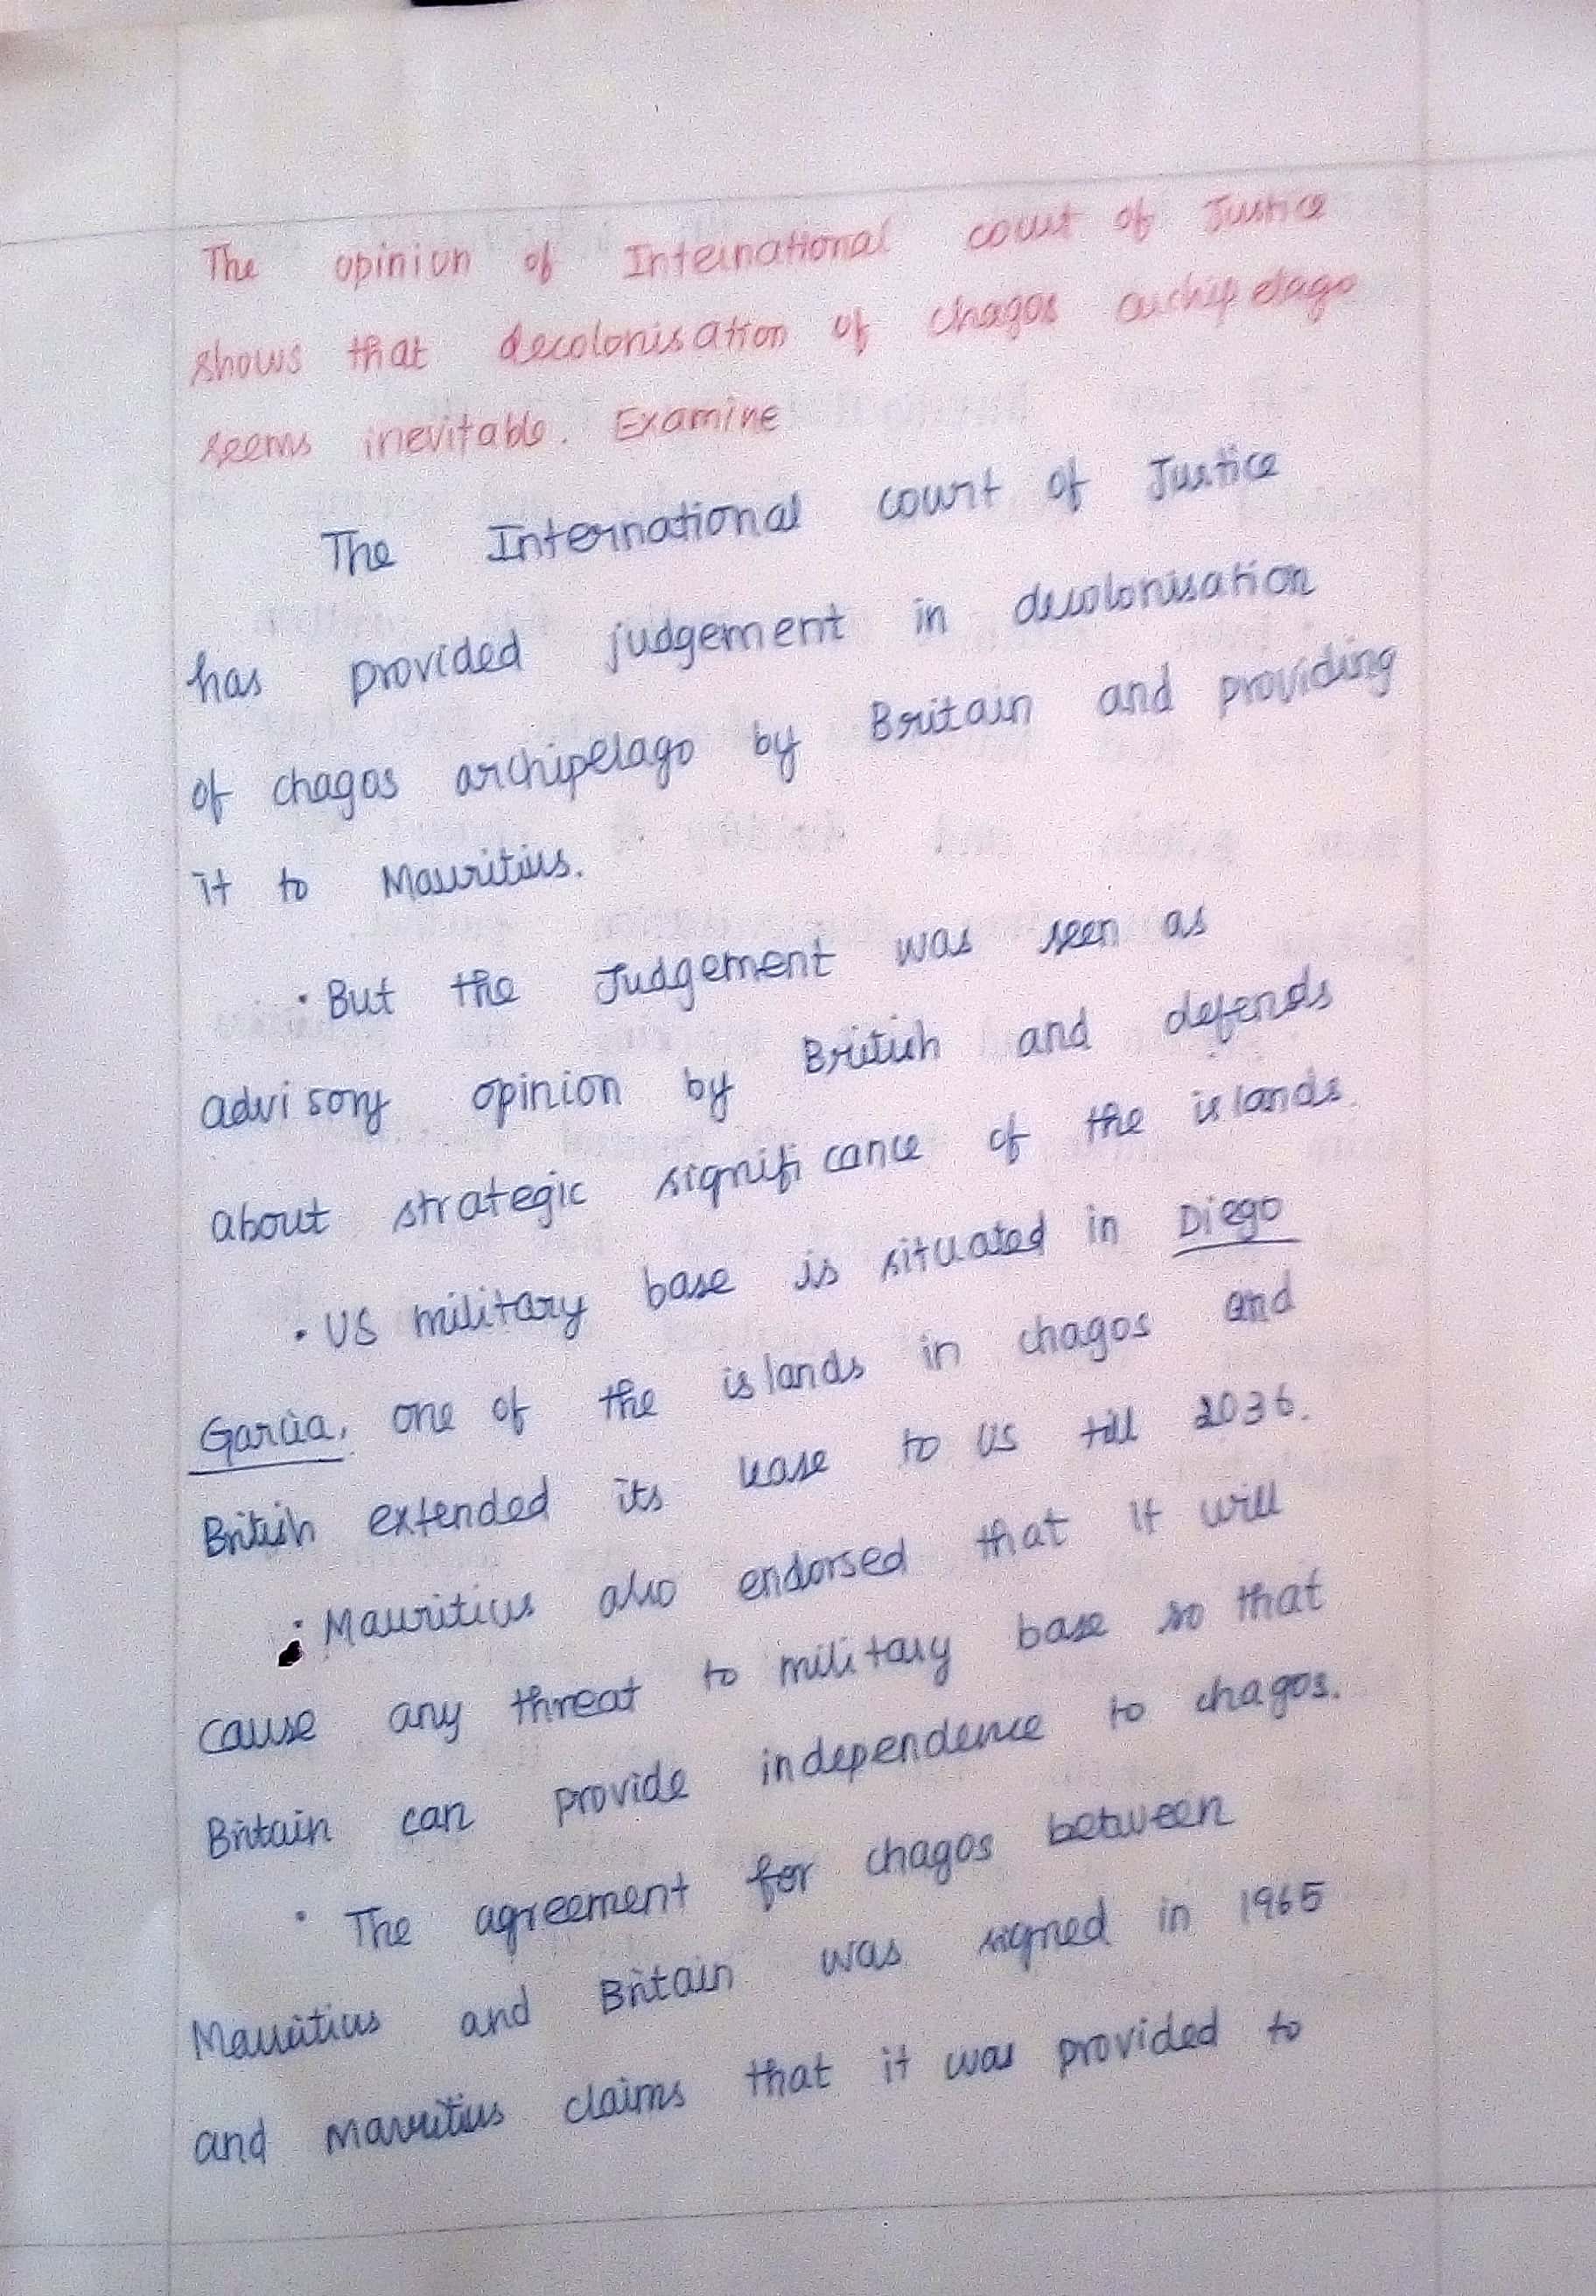 The opinion of International court of Justice
shows that decolonisation of chagos archipelago
seems inevitable. Examine
The International court of Justice
has provided judgement in decolonisation
of chagos archipelago by Britain and providing
it to Mauritius.
• But the Judgement was seen as
advisory opinion by British and defends
about strategic significance of the islands.
• US military base is situated in Diego
Garcia, one of the islands in chagos and
British extended its lease to US till 2036.
• Mauritius also endorsed that it will
cause any threat to military base so that
Britain can provide independence to chagos.
• The agreement for chagos between
Mauritius and Britain was signed in 1965
and Mauritius claims that it was provided to